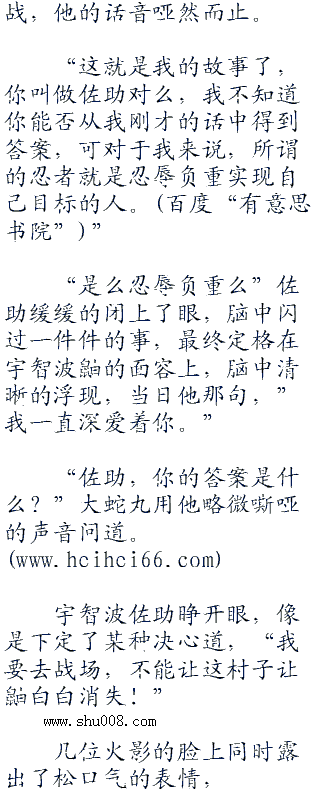 战，他的话音哑然而止。
“这就是我的故事了，
你叫做佐助对么，我不知道
你能否从我刚才的话中得到
答案，可对于我来说，所谓
的忍者就是忍辱负重实现自
己目标的人。(百度“有意思
书院”)”
“是么忍辱负重么”佐
助缓缓的闭上了眼，脑中闪
过一件件的事，最终定格在
宇智波鼬的面容上，脑中清
晰的浮现，当日他那句，”
我一直深爱着你。”
“佐助，你的答案是什
么？”大蛇丸用他略微嘶哑
的声音问道。
(www.hcihci66.com)
宇智波佐助睁开眼，像
是下定了某种决心道，“我
要去战场，不能让这村子让
鼬白白消失！”
www.shu008.com
几位火影的脸上同时露
出了松口气的表情，